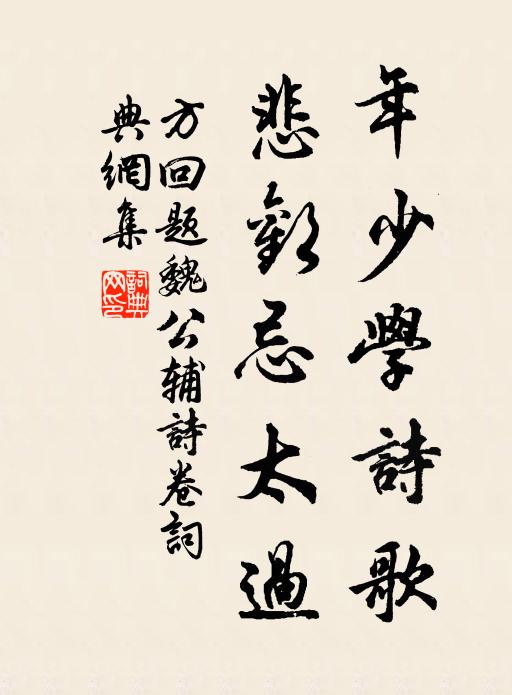 年少學詩歌
悲歡忌太過
方回题魏公辅詩卷詞
典網集
詞典網印